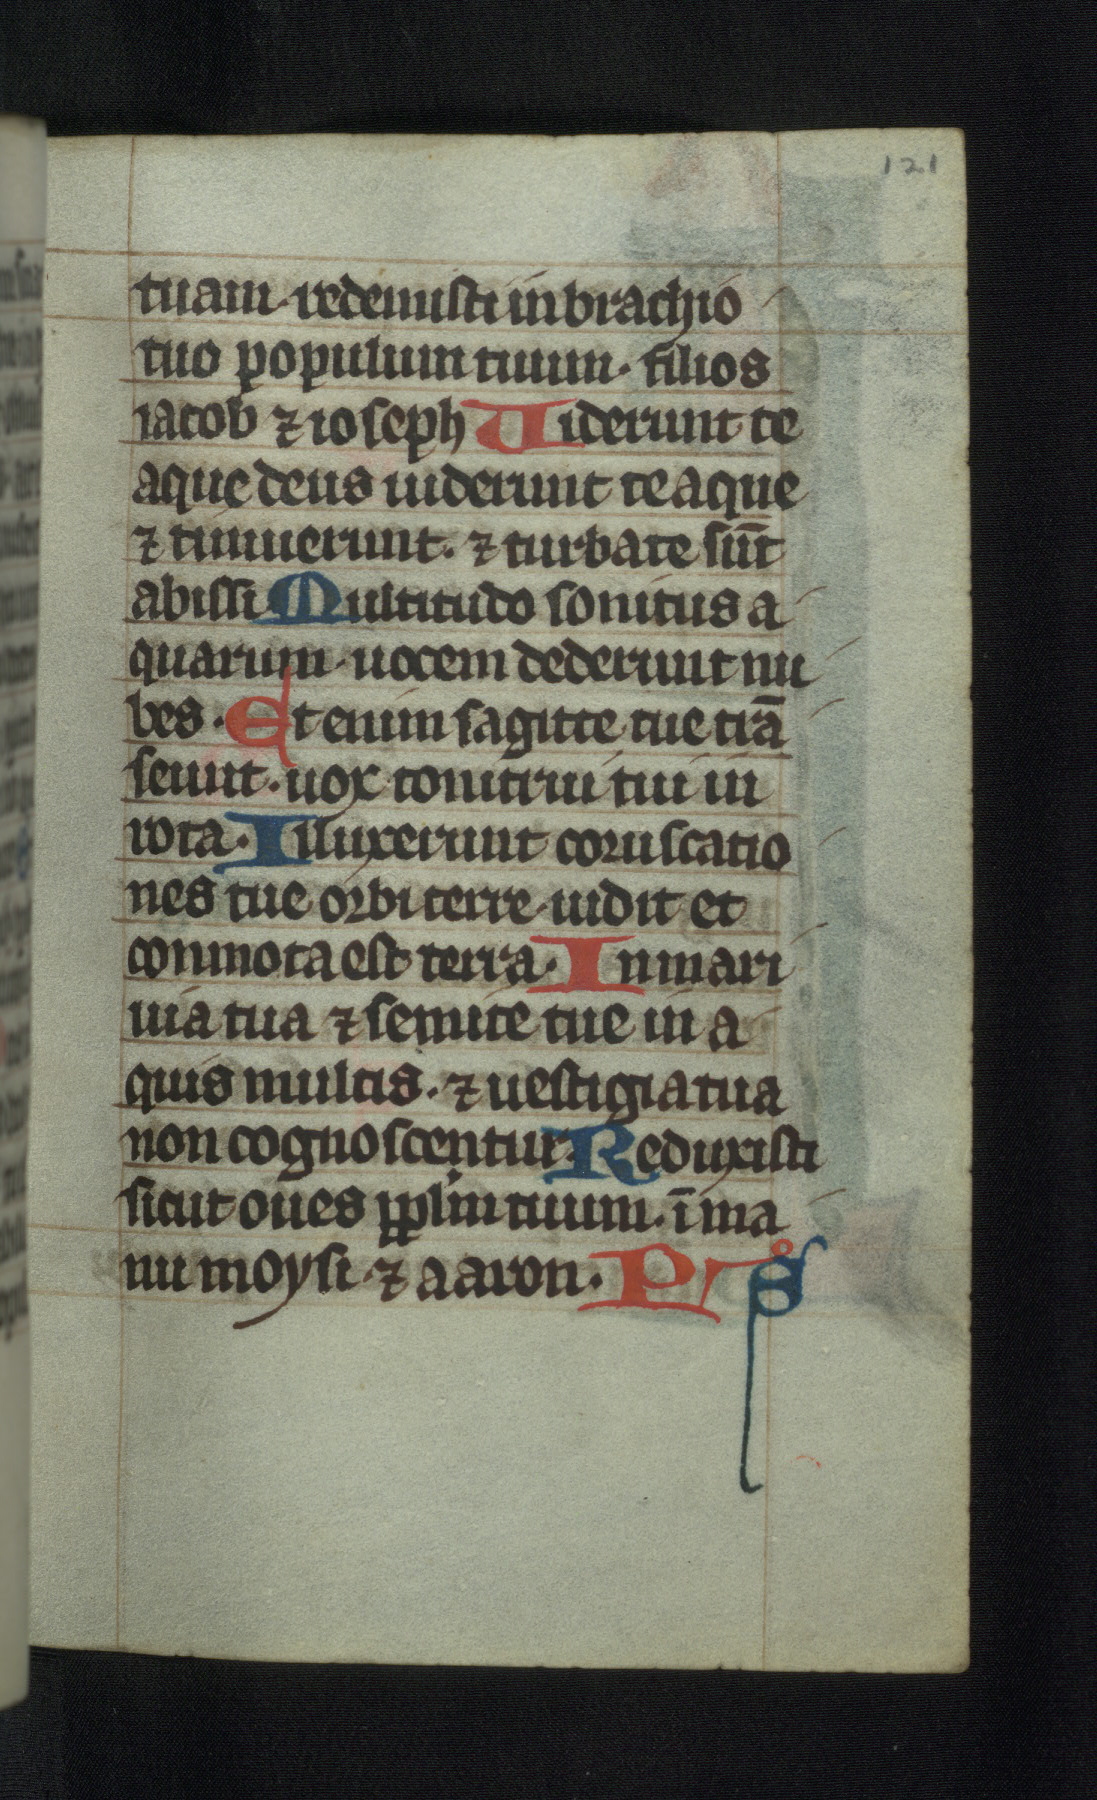 121
tuam. redemisti in brachio
tuo populum tuum. filios
iacob ⁊ ioseph Uiderunt te
aque deus uiderunt te aque
⁊ timuerunt. ⁊ turbate sūt
abissi Multitudo sonitus a
quarum. uocem dederunt nu
bes. Etenim sagitte tue trā
seunt. uox tonitrui tui in
rota. Illuxerunt coruscatio
nes tue orbi terre. uidit et
conmota est terra. In mari
uia tua ⁊ semite tue in a
quis multis. ⁊ uestigia tua
non cognoscentur. Reduxisti
sicut oues pplm tuum. ī ma
nu moysi ⁊ aaron. Ps